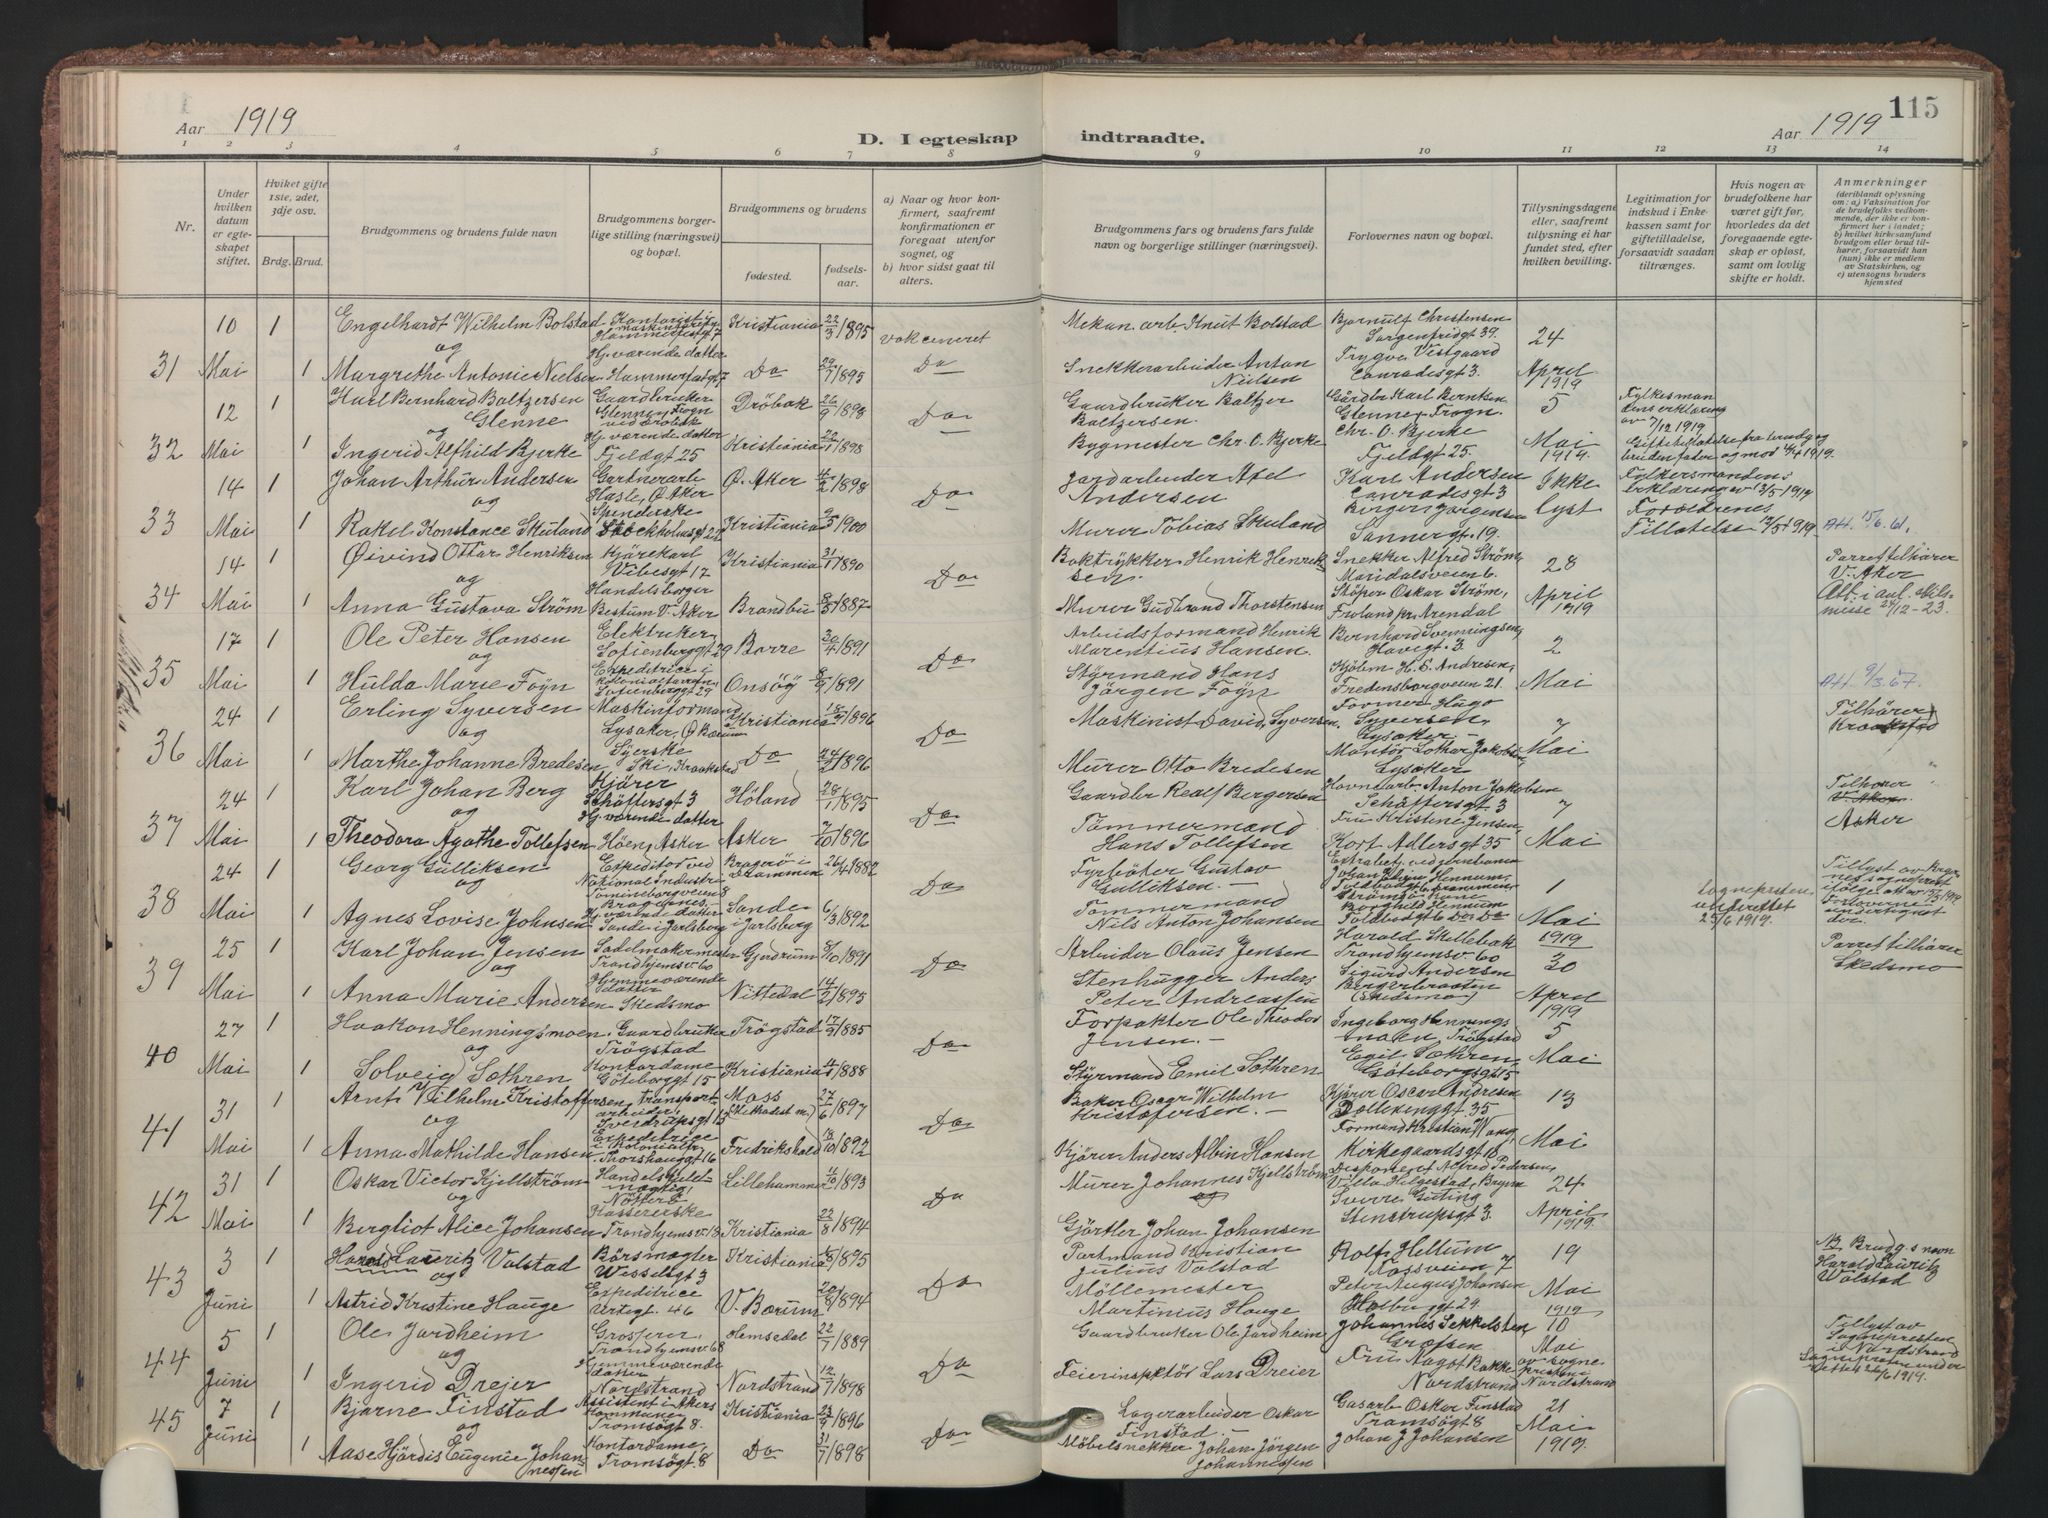 115
Aar 1919
D. I egteskap indtraadte.
Aar 1919
1 2 3 4 5 6 7 8 9 10 11 12 13 14
Nr.
Under hvilken datum er egteskapet stiftet.
Hviket gifte 1ste, 2det, 3dje osv.
Brdg. Brud.
Brudgommens og brudens fulde navn
Brudgommens borgerlige stilling (næringsvei) og bopæl.
Brudgommens og brudens
fødested.
fødselsaar.
a) Naar og hvor konfirmert, saafremt konfirmationen er foregaat utenfor sognet, og
b) hvor sidst gaat til alters.
Brudgommens fars og brudens fars fulde navn og borgerlige stillinger (næringsvei).
Forlovernes navn og bopæl.
Tillysningsdagene eller, saafremt tillysning ei har fundet sted, efter hvilken bevilling.
Legitimation for indskud i Enkekassen samt for giftetilladelse, forsaavidt saadan tiltrænges.
Hvis nogen av brudefolkene har været gift før, hvorledes da det foregaaende egteskap er opløst, samt om lovlig skifte er holdt.
Anmerkninger
(deriblandt oplysning om: a) Vaksination for de brudefolks vedkommende, der ikke er konfirmert her i landet; b) hvilket kirkesamfund brudgom eller brud tilhører, forsaavidt han (hun) ikke er medlem av Statskirken, og c) utensogns bruders hjemsted
31 10 Mai 1 Engelhardt Wilhelm Bolstad Kontorist i Hammerfestgt 7 Kristiania 22/3 1895 vakceneret Mekan. arb. Knut Bolstad Bjarnulf Christensen Sorgenfrigt 39. 24
og
1 Margrethe Antonie Nielsen Hj. værende datter Hammerfestgt 7 Do 29/7 1895 Do Snekkerarbeider Anton Nielsen Trygve Vestgaard Conradisgt 3. April 1919
32 12 Mai 1 Karl Bernhard Baltzersen Glenne Gaardbruker Glenne, Frogn ved Drøbak Drøbak 26/9 1898 Do Gaardbruker Baltzer Baltzersen. Gårdbr Karl Berntsen Glenne, Frogn. 5 Fylkesmandens erklæring av 7/12 1919
og
1 Ingerid Alfhild Bjerke Hj. værende datter Fjeldgt 25 Kristiania 1898 Bygmester Chr. O. Bjerke Chr. O. Bjerke Fjeldgt 25. Mai 1919. Giftetilatelse fra brudg og brudens fader og mod 4/4 1919.
33 14 Mai 1 Johan Arthur Andersen Gartnerarb Hasle, Ø. Aker Ø. Aker 4/2 1898 Do Jordarbeider Axel Andersen Karl Andersen Conradisgt 3 Ikke lyst Fylkesmandens Erklæring av 13/5 1919
og
1 Rakel Konstance Skuland Spenderske Stockholmsgt 22 Kristiania 9/5 1900 Murer Tobias Skuland Berger Jørgensen Sannergt. 19. Foreldrenes Tillatelse 12/5 1919. Att. 15/6. 61.
34 14 Mai 1 Øivind Ottar Henriksen Kjørekarl Vibesgt 17 Kristiania 31/1 1890 Do Boktrykker Henrik Henriksen. Snekker Alfred Strøm, Maridalsveien 6. 28 Parret tilhører V. Aker
og
1 Anna Gustava Strøm Handelsborger Bestum V. Aker Brandbu 8/8 1887 Murer Gudbrand Thorstensen Støper Oskar Strøm, Froland pr. Arendal April 1919
35 17 Mai 1 Ole Peter Hansen Elektriker Sofienberggt 29 Borre 30/4 1891 Do Arbeidsformand Henrik Marentius Hansen. Bernhard Svenningsen, Havigt. 3. 2
og
1 Hulda Marie Foyn Expeditrice i kolonialforretn. Sofienberggt 29 Onsøy 8/9 1891 Styrmand Hans Jørgen Foyn Kjølem H. E. Andresen, Fredensborgveien 21. Mai Att. 9/3. 67.
36 24 Mai 1 Erling Syversen Maskinformand Lysaker, Ø. Bærum Kristiania 18/9 1896 Do Maskinist David Syversen. Former Hugo Syversen, Lysaker. 7 Tilhører Kraakstad
og
1 Marthe Johanne Bredesen Syerske Ski, Kraakstad Do 24/2 1896 Murer Otto Bredesen Montør Lothar Jakobsen, Lysaker Mai
37 24 Mai 1 Karl Johan Berg Kjører Schäffersgt 3 Høland 28/1 1895 Do Gaardbr Realf Bergersen Havnearb. Anton Jakobsen Schäffersgt. 3 7 Tilhører V. Aker.
og
1 Theodora Agathe Tollefsen Hj. værende datter Høen, Asker Asker 7/10 1896 Tømmermand Hans Tollefsen Fru Kristine Jensen, Kort Adlersgt 35 Mai Asker
38 24 Mai 1 Georg Gulliksen Expeditør ved National Industri Bragernes. Bragerø i Drammen 26/4 1882 Do Fyrbøter Gustav Gulliksen. Extrabetj. ved jernbanen Johan Hennum, 1 Sogneprsten underettet 25/6 1919.
og
1 Agnes Lovise Johnsen Hj. værende datter Sande i Jarlsberg Sande i Jarlsberg 6/3 1892 Tømmermand Nils Anton Johansen Borghild Hennum Toldbodgt 6 Do Do Mai 1919
39 25 Mai 1 Karl Johan Jensen Sadelmakermester Trondhjemsv. 60 Gjerdrum 8/10 1891 Do Arbeider Olaus Jensen Harald Skillebæk Trondhjemsv. 60 30 Parret tilhører Skedsmo
og
1 Anna Marie Andersen Hjemmeværende datter Skedsmo Nittedal 14/2 1895 Stenhugger Anders Peter Andreassen Sigurd Andersen Bergerbraaten (Skedsmo) April 1919
40 27 Mai 1 Haakon Henningsmoen Gaardbruker Trøgstad Trøgstad 17/9 1885 Do Forpakter Ole Theodor Jensen. Ingeborg Henningsmoen, Trøgstad 5
og
1 Solveig Sæthren Kontordame Gøteborggt 15 Kristiania 4/9 1888 Styrmand Emil Sæthren Egil Sæthren Gøteborgsgt 15 Mai
41 31 Mai 1 Arnt Vilhelm Kristoffersen Transportarbeider, Sverdrupsgt 15 Moss (Methodist m.) 27/6 1897 Do Baker Oscar Wilhelm Kristofersen. Kjører Oscar Andresen Dælenenggt 35 13
og
1 Anna Mathilde Hansen Expeditrice i kolonialh. Thorshauggt 16 Fredrikshald 13/10 1892 Kjører Anders Albin Hansen Formand Kristian Wang, Kirkegaardsgt 18 Mai
42 31 Mai 1 Oskar Victor Kjellstrøm Handelsfuldmægtig, Nøtterø Lillehammer 4/10 1893 Do Murer Johannes Kjellstrøm Disponent Alfred Pedersen, Villa Helgestad, Bryn 24
og
1 Bergliot Alice Johansen Kassererske Trondhjemsv. 13 Kristiania 23/8 1894 Gjørtler Johan Johansen Sverre Guting Stenstrupsgt 3. April 1919.
43 3 Juni 1 Harald Lauritz Valstad Børsmægler Wesselsgt 3 Kristiania 1895 Do Partmand Kristian Julius Valstad Rolf Hellum Kossveien 7 19 NB Brudg.s navn Harald Lauritz Valstad
og
1 Astrid Kristine Hauge Expeditrice Urtegt. 46 V. Bærum 20/8 1894 Møllemester Martinius Hauge Peter August Johansen Mai 1919
44 5 Juni 1 Ole Jordheim Grosserer, Trondhjemsv. 68 Hemsedal 22/7 1889 Do Gaardbruker Ole Jordheim Johannes Sekkelsten Græfsen 10 Tillyst av Sognepresten i Nordstrand
og
1 Ingerid Drejer Hjemmeværende datter Nordstrand Nordstrand 12/7 1898 Feierinspektør Lars Dreier Fru Aagot Bakke Nordstrand Mai av sogneprestene Nordstrand Sognepresten underrettet 26/6 1919.
45 7 Juni 1 Bjarne Finstad Assistent i Akers kommune Tromsøgt 8. Kristiania 23/9 1896 Do Lagerarbeider Oskar Finstad. Gasarb. Oskar Finstad Tromsøgt 8 21
og
1 Aase Hjørdis Eugenie Johannessen Kontordame, Tromsøgt. 8 Do 31/7 1898 Møbelsnekker Johan Jørgen Johannessen Johan J Johansen Mai 1919.